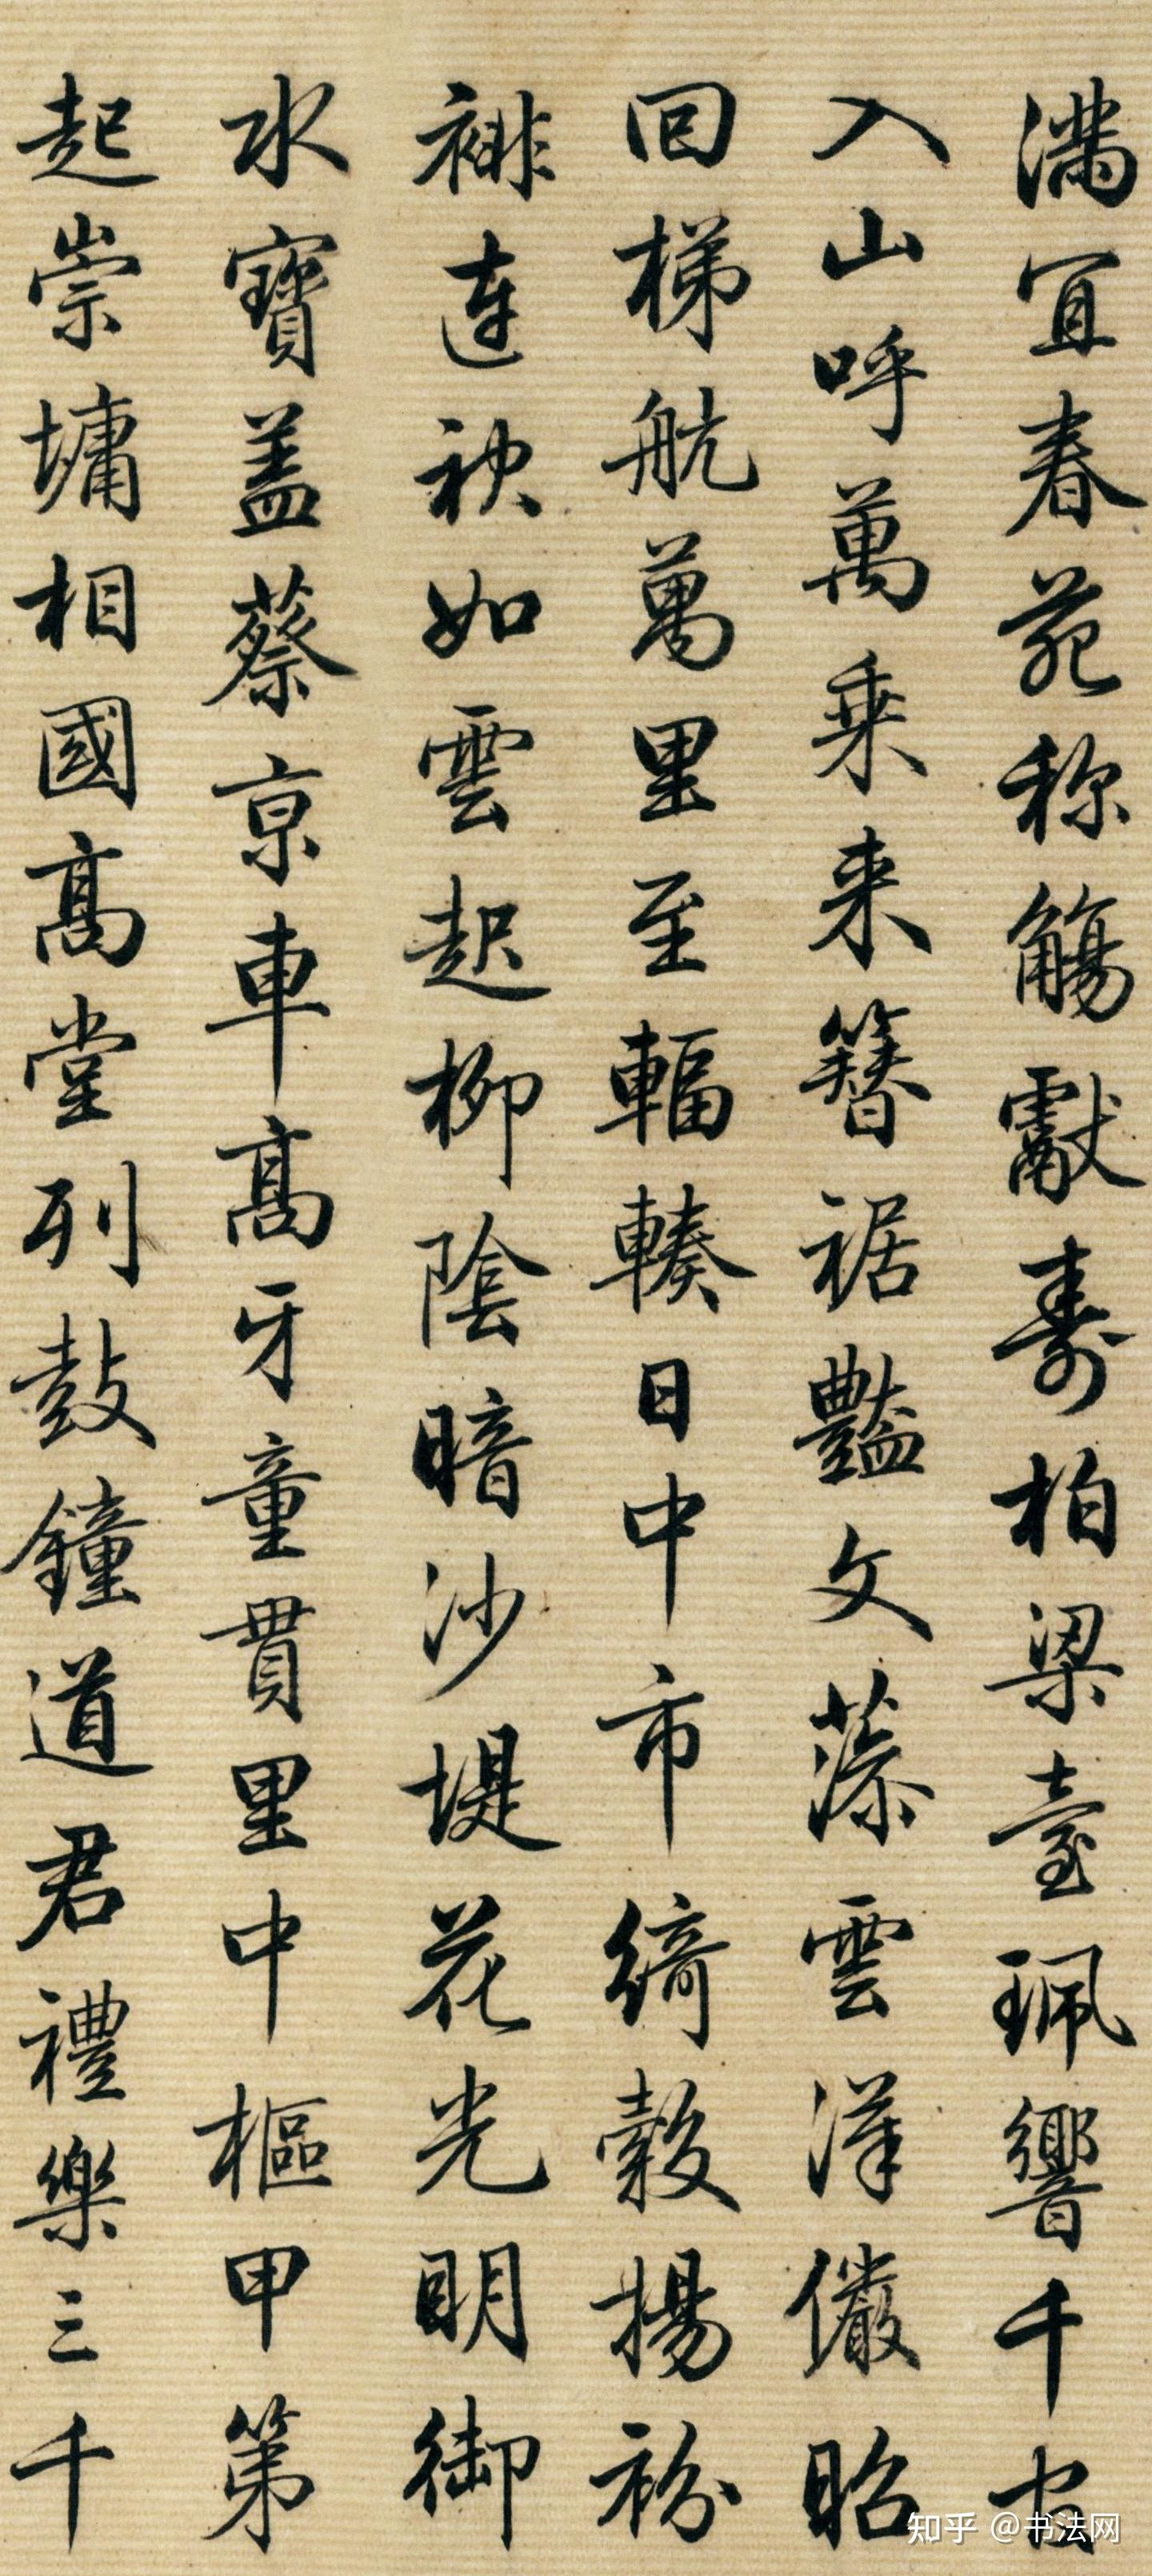 滿宜春苑称觴獻壽柏梁臺珮響千官
入山呼萬乗来簪裾艷文藻雲漢儼昭
回梯航萬里至輻輳日中市綺縠揚紛
裶連袂如雲起柳陰暗沙堤花光明御
水寶盖蔡京車髙牙童貫里中樞甲第
起崇墉相國髙堂列鼓鐘道君禮樂三千
知乎 @书法网